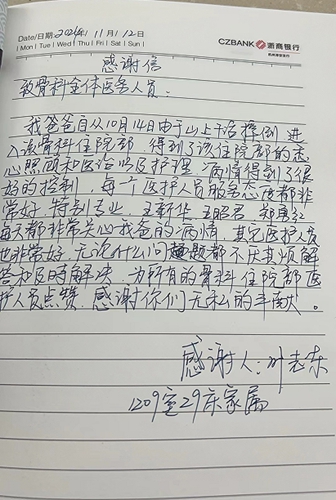 Date/日期 2024/11/12日
CZBANK 浙商银行
Mon | Tue | Wed | Thu | Fri | Sat | Sun |
感谢信
致骨科全体医务人员：
我爸爸自从10月14日由于山上干活摔倒 进
入该骨科住院部，得到了该住院部的悉
心照顾和医治以及护理，病情得到了很
好的控制，每个医护人员服务态度都非
常好，特别专业，王新华，王昭君，郑
每天都非常关心我爸的病情，其它医护人员
也非常好，无论什么问题都不厌其烦解
答和及时解决，为所有的骨科住院部医
护人员点赞，感谢你们无私的奉献。
感谢人：叶志东
1209室29床家属